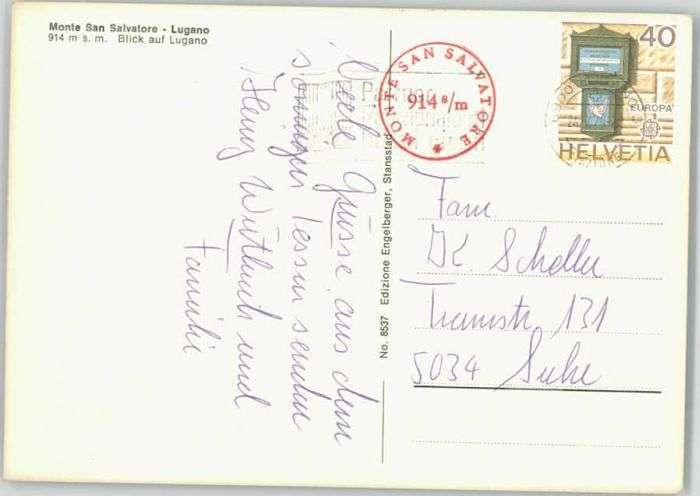 Monte San Salvatore - Lugano
914 m s. m. Blick auf Lugano
Viele Grüsse aus dem
sonnigen Tessin senden
Heinz Wüthrich und
Familie
No. 8537 Edizione Engelberger, Stansstad
MONTE SAN SALVATORE
914 s/m
40
EUROPA
HELVETIA
Fam.
K. Scheller
Tramstr. 131
5034 Suhr